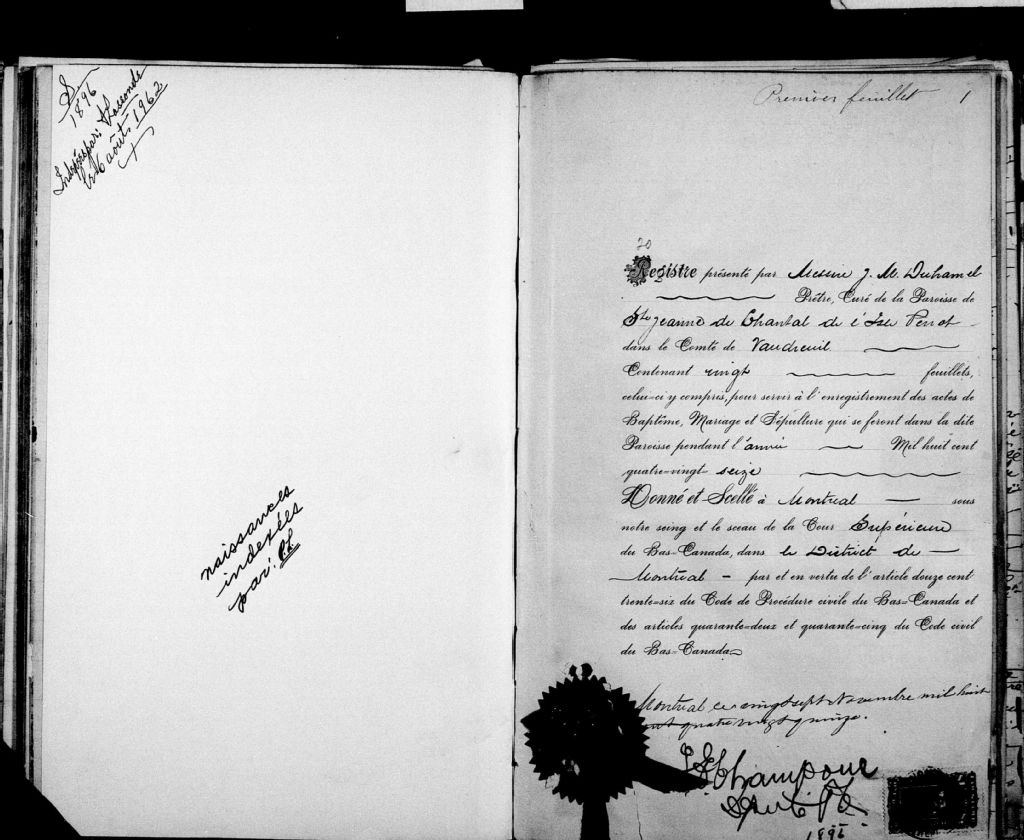 S
1896
Indexé par:
le 16 août 1962
naissances
indexées
par:
Premier feuillet 1
20
Registre présenté par Messire J. M. Duhamel
Prêtre, Curé de la Paroisse de
Ste Jeanne de Chantal de l'Isle Perrot
dans le Comté de Vaudreuil
Contenant vingt feuillets,
celui-ci y compris, pour servir à l'enregistrement des actes de
Baptême, Mariage et Sépulture qui se feront dans la dite
Paroisse pendant l'année Mil huit cent
quatre-vingt seize
Donné et Scellé à Montreal sous
notre seing et le sceau de la Cour Supérieure
du Bas-Canada, dans le District de
Montreal par et en vertu de l'article douze cent
trente-six du Code de Procédure civile du Bas-Canada et
des articles quarante-deux et quarante-cinq du Code civil
du Bas-Canada
Montréal ce vingt sept Novembre mil huit
cent quatre vingt quinze.
Champour
1896